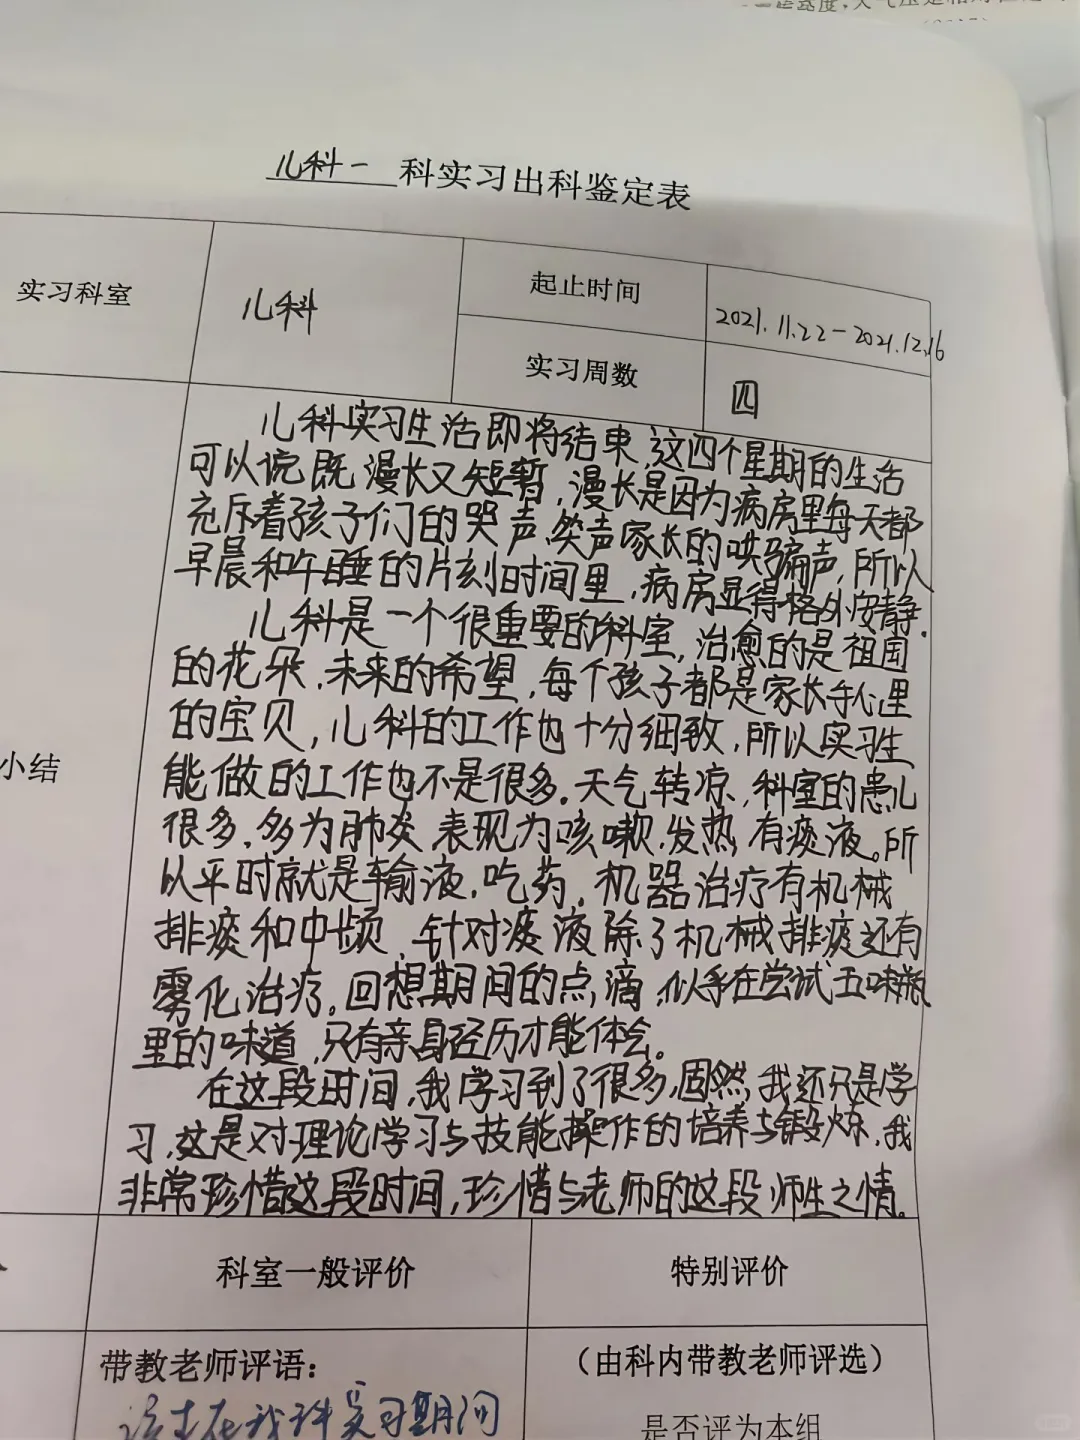 儿科一 科实习出科鉴定表
实习科室
儿科
起止时间
2021.11.22-2021.12.16
实习周数
四
小结
儿科实习生活即将结束,这四个星期的生活
可以说既漫长又短暂,漫长是因为病房里每天都
充斥着孩子们的哭声、笑声家长的哄骗声,所以
早晨和午睡的片刻时间里,病房显得格外安静.
儿科是一个很重要的科室,治愈的是祖国
的花朵,未来的希望,每个孩子都是家长手心里
的宝贝,儿科的工作也十分细致,所以实习生
能做的工作也不是很多.天气转凉,科室的患儿
很多,多为肺炎 表现为咳嗽,发热,有痰液。所
以平时就是输液,吃药,机器治疗有机械
排痰和中频,针对痰液除了机械排痰还有
雾化治疗,回想期间的点滴,似乎在尝试五味瓶
里的味道,只有亲身经历才能体会。
在这段时间,我学习到了很多,固然,我还只是学
习,这是对理论学习与技能操作的培养与锻炼,我
非常珍惜这段时间,珍惜与老师的这段师生之情。
科室一般评价
特别评价
带教老师评语:
(由科内带教老师评选)
该生在我科实习期间
是否评为本组